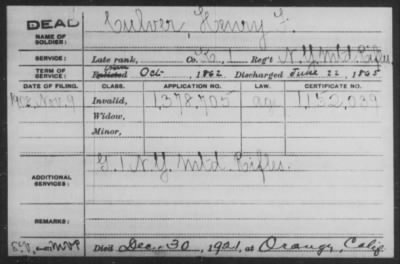 DEAD
NAME OF SOLDIER:
Culver, Henry F.
SERVICE:
Late rank, Co. K, 1 Reg't N.Y. Mtd. Rifles
TERM OF SERVICE:
Enlisted Oct , 1862 Discharged June 22, 1865
DATE OF FILING. CLASS. APPLICATION NO. LAW. CERTIFICATE NO.
Nov. 9 Invalid, 1,378,705 1,152,039
Widow,
Minor,
ADDITIONAL SERVICES:
G. 1 N.Y. Mtd. Rifles.
REMARKS:
Died Dec. 30, 1921, at Orange, Calif.